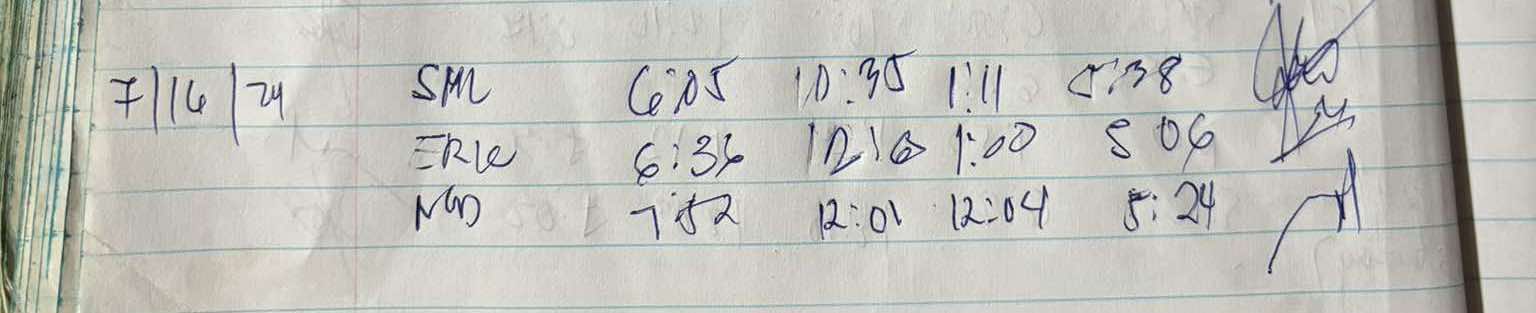 7/16/24 SML 6:05 10:35 1:11 5:38
ERIC 6:36 12:10 1:00 5 06
7:52 12:01 12:04 5:24